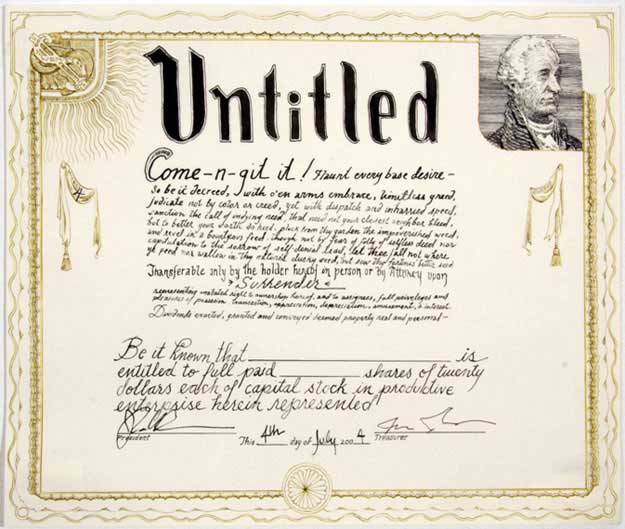 Untitled
Come-n-git it! Flaunt every base desire-
So be it decreed, with o'en arms embrace, limitless greed,
judicate not by color or creed, yet with dispatch and inharried speed,
Sanction the call of undying need, that need not your closest neighbor bleed,
but to better your worth. So heed, pluck from thy garden the impoverished weed,
and revel in a bounteous feed, though not by fear of folly of selfless deed nor
capitulation to the sorrow of self denial lead, let thee fall not where
ye peed nor wallow in thy natural duery
Transferable only by the holder hereby in person or by Attorney upon
Surrender
representing unabated right to ownership hereof, and to assignees, full privileges and
pleasures of possession, transaction, appreciation, depreciation, amusement, & interest.
Dividends exacted, granted and conveyed deemed property real and personal-
Be it known that is
entitled to full paid shares of twenty
dollars each of capital stock in productive
enterprise herein represented
President This 4th day of July 2004 Treasurer